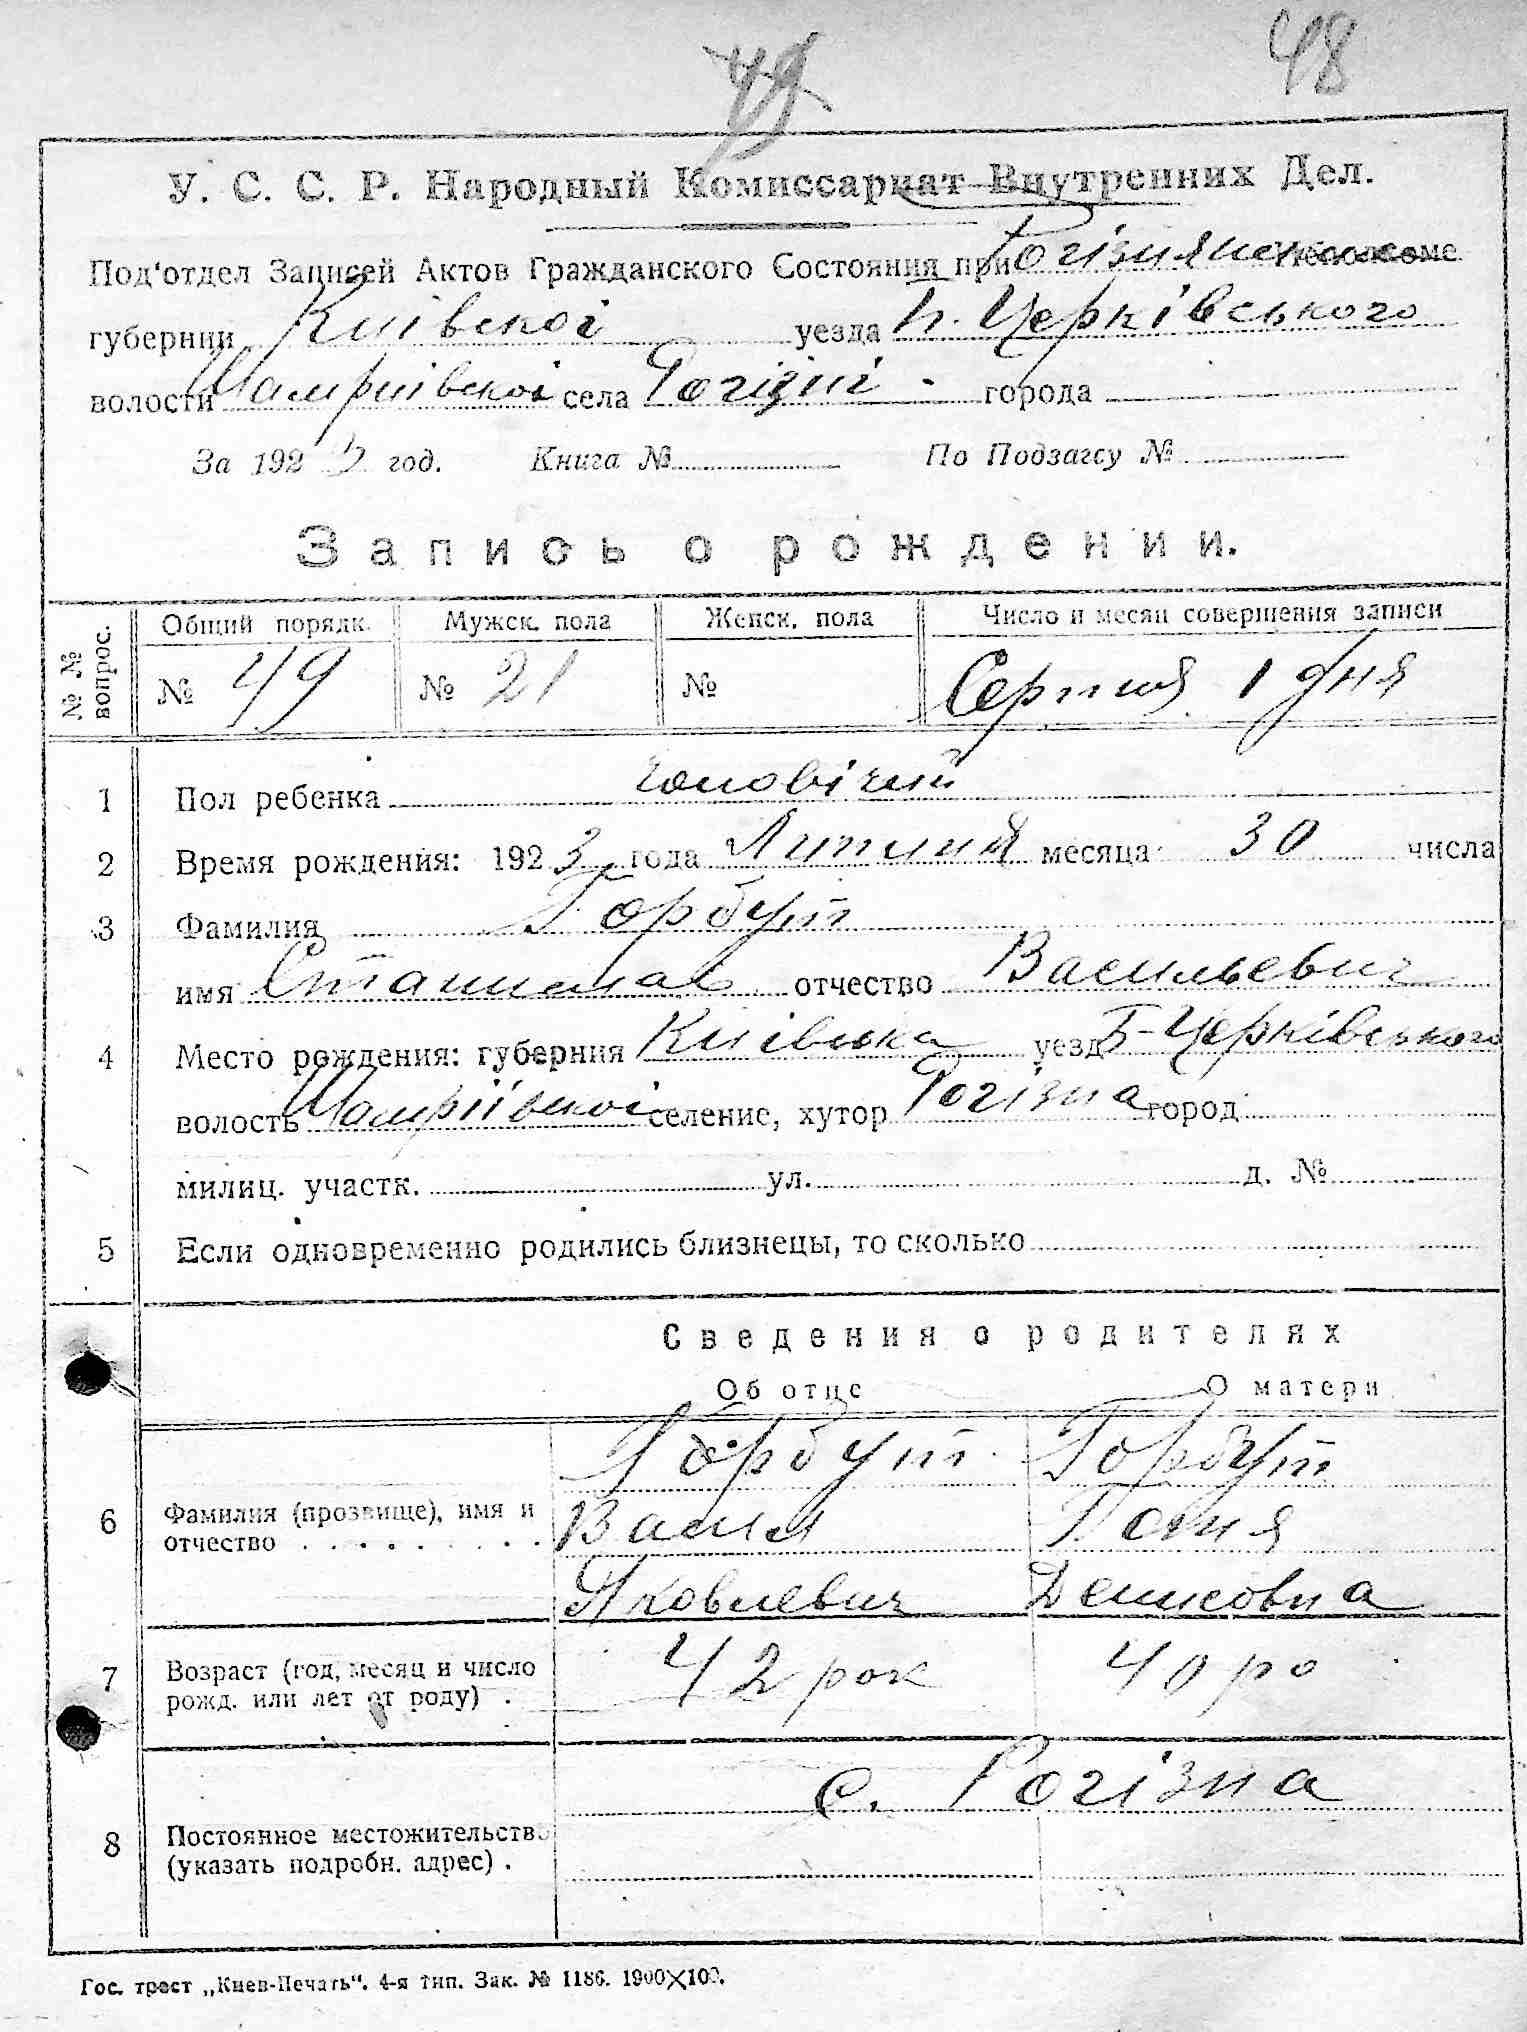 49 48
У. С. С. Р. Народный Комиссариат Внутренних Дел.
Под‘отдел Записей Актов Гражданского Состояния при
губернии Київскоі уезда Б. Церківського
волости села Рогізні города
За 192 3 год. Книга № По Подзагсу №
Запись о рождении.
№ № вопрос. Общий порядк. Мужск. пола Женск. пола Число и месяц совершения записи
№ 49 № 21 № Серпня 1 дня
1 Пол ребенка чоловічий
2 Время рождения: 192 3 года Липня месяца 30 числа
3 Фамилия Горбут
имя Станислав отчество Васильевич
4 Место рождения: губерния Київська уезд Б-Церківського
волость селение, хутор Рогізна город
милиц. участк. ул. д. №
5 Если одновременно родились близнецы, то сколько
Сведения о родителях
Об отце О матери
Горбут Горбут
6 Фамилия (прозвище), имя и Васил
отчество
Яковлевич Денисовна
7 Возраст (год, месяц и число 42 рок 40 ро
рожд. или лет от роду) .
с. Рогізна
8 Постоянное местожительство
(указать подробн. адрес) .
Гос. трест „Киев-Печать“. 4-я тип. Зак. № 1186. 1900×100.